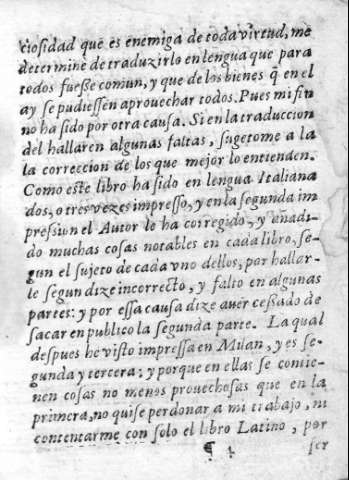 ciosidad que es enemiga de toda virtud, me
determine de traduzirlo en lengua que para
todos fueße comun, y que de los bienes q̃ en el
ay se pudiessen aprouechar todos. Pues mi fin
no ha sido por otra causa. Si en la traduccion
del hallaren algunas faltas, sugetome a la
la correccion de los que mejor lo entienden.
Como este libro ha sido en lengua Italiana
dos, o tres vezes impresso, y en la segunda im
pression el Autor le ha corregido, y añadi-
do muchas cosas notables en cada libro, se-
gun el sujeto de cada vno dellos, por hallar-
le segun dize incorrecto, y falto en algunas
partes: y por essa causa dize auer ceßado de
sacar en publico la segunda parte. La qual
despues he visto impressa en Milan, y es se-
gunda y tercera; y porque en ellas se contie-
nen cosas no menos prouechosas que en la
primera, no quise perdonar a mi trabajo, ni
contentarme con solo el libro Latino, por
¶ 4 ser